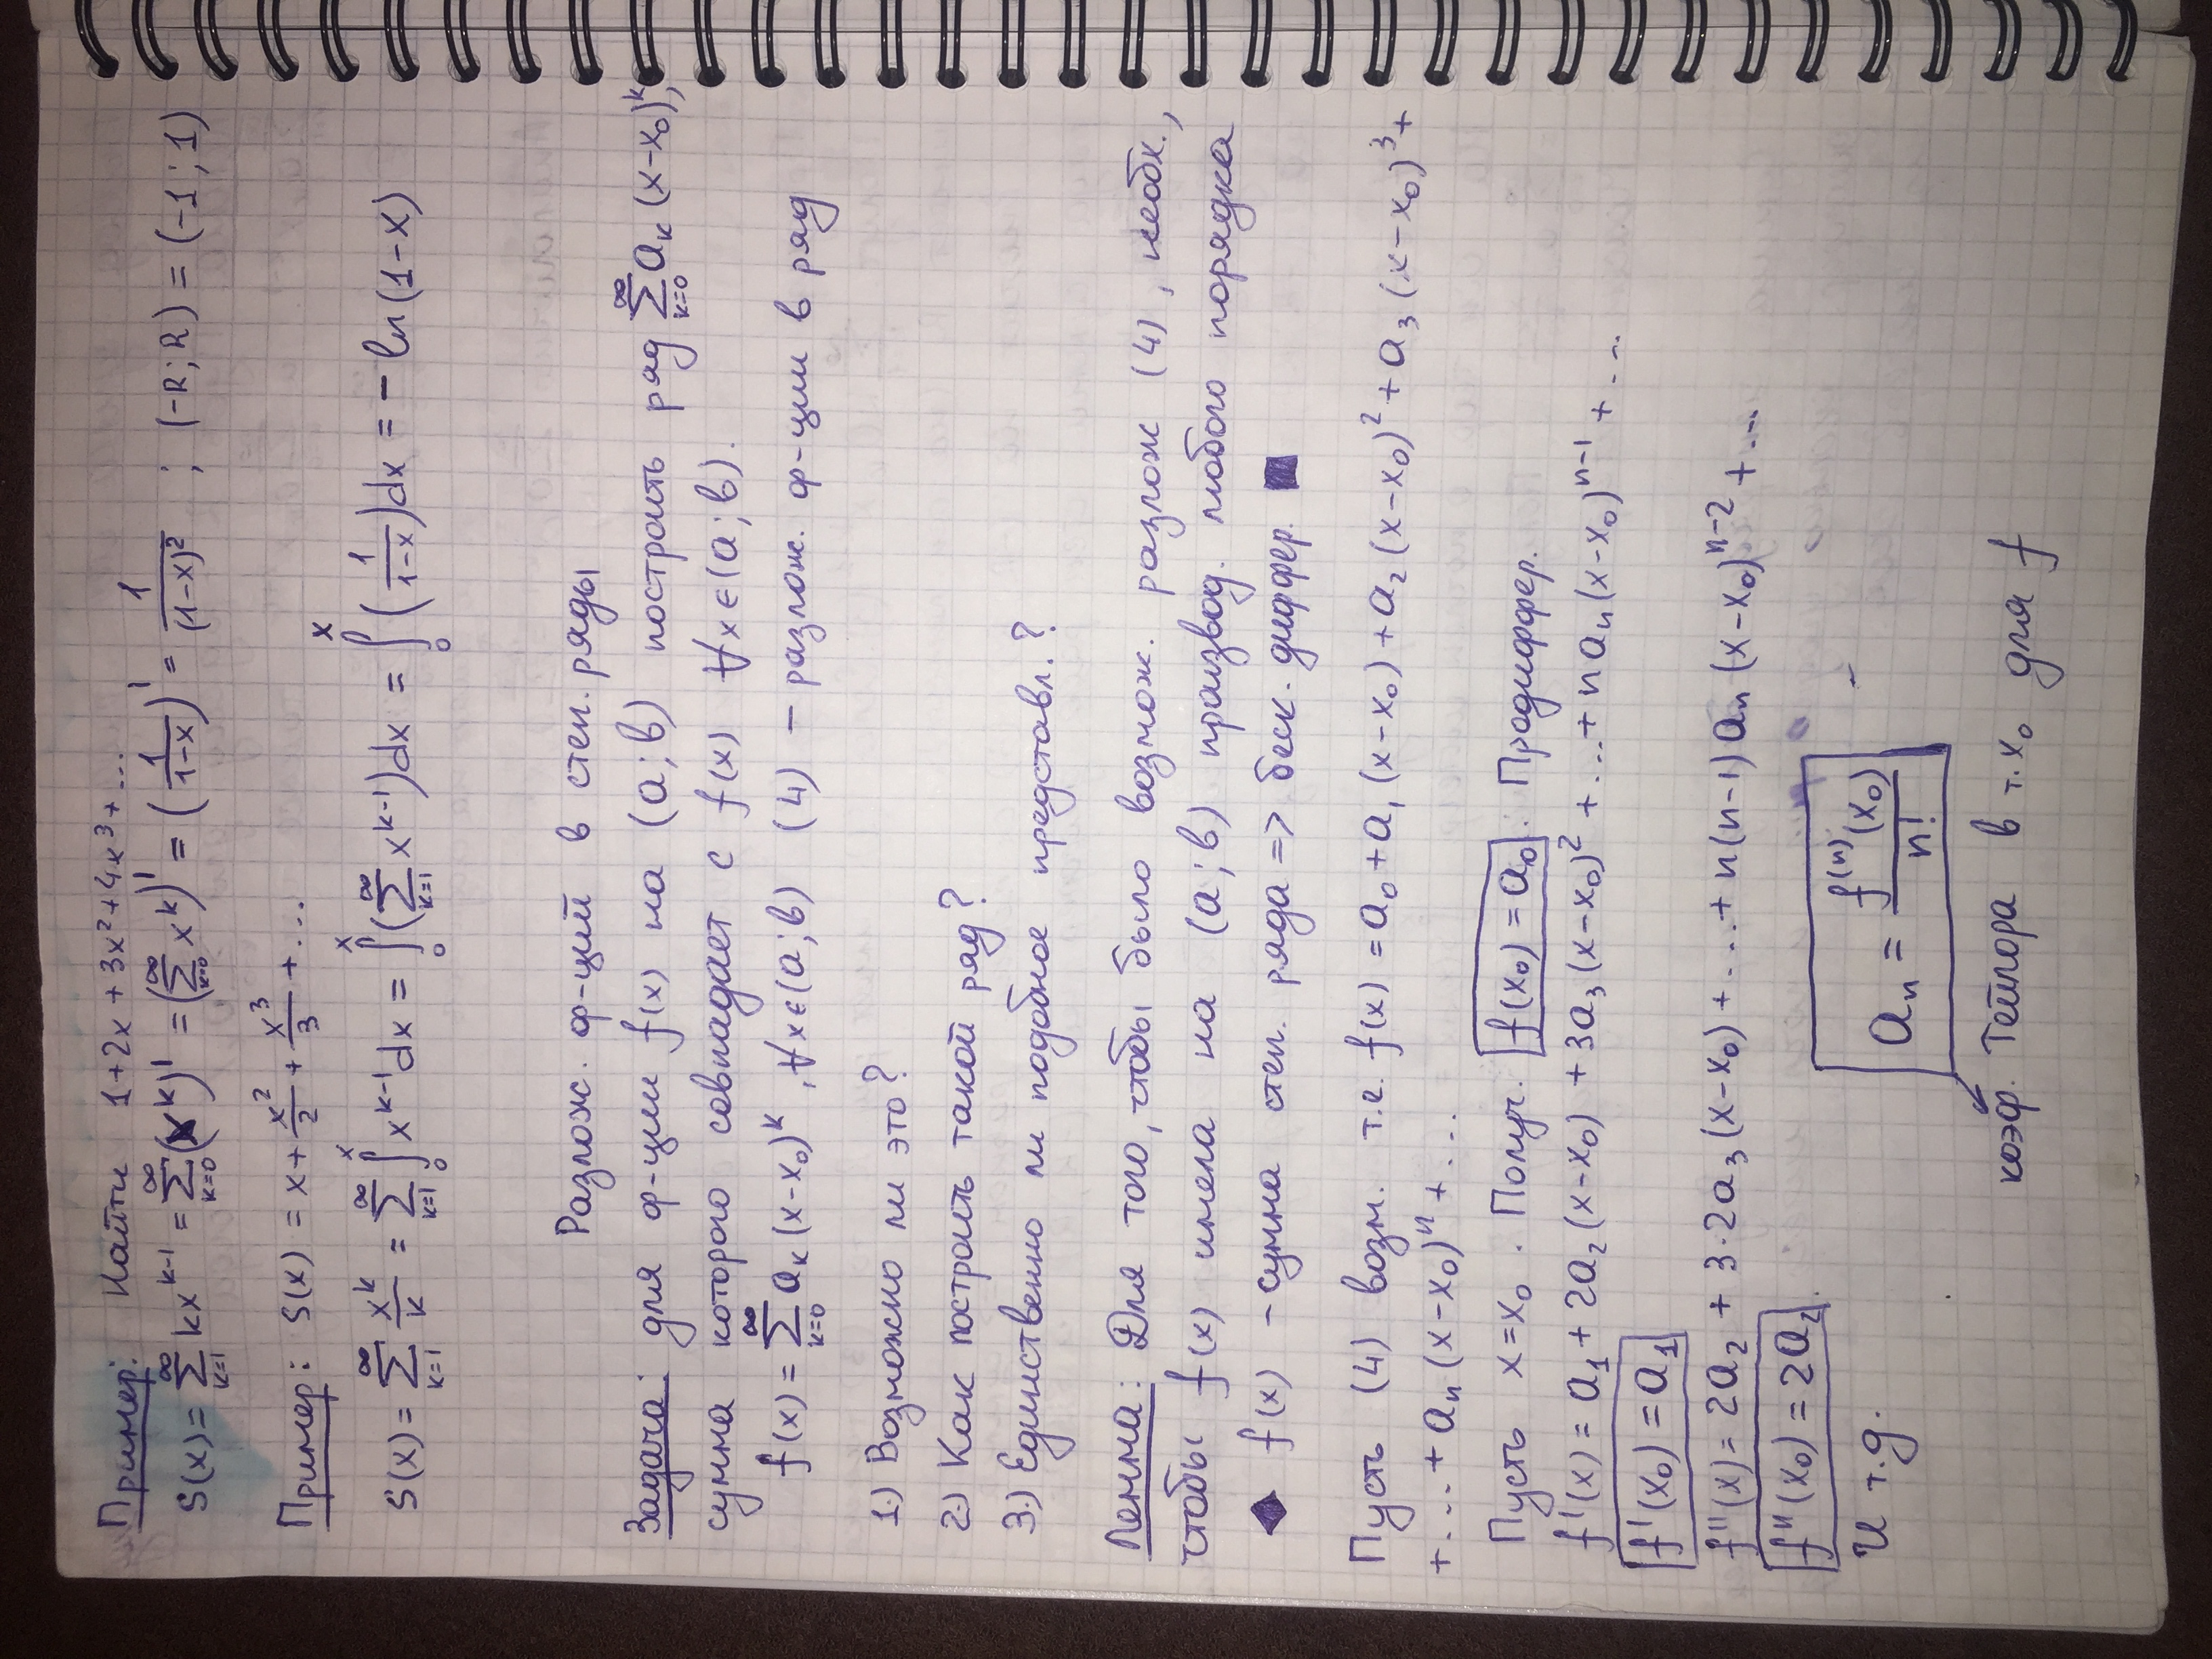 Пример: Найти 1+2x+3x²+4x³+...
S(x)= ∑_{k=1}^{∞} kx^{k-1} = ∑_{k=0}^{∞} (x^k)' = (∑_{k=0}^{∞} x^k)' = (1/(1-x))' = 1/(1-x)² ; (-R;R) = (-1;1)
Пример: S(x) = x + x²/2 + x³/3 + ...
S(x)= ∑_{k=1}^{∞} x^k/k = ∑_{k=1}^{∞} ∫_0^x x^{k-1}dx = ∫_0^x (∑_{k=1}^{∞} x^{k-1})dx = ∫_0^x (1/(1-x))dx = - ln(1-x)
Разлож. ф-ций в степ. ряды
Задача: для ф-ции f(x) на (a;b) построить ряд ∑_{k=0}^{∞} a_k (x-x₀)^k,
сумма которого совпадает с f(x) ∀x∈(a;b).
f(x)= ∑_{k=0}^{∞} a_k (x-x₀)^k, ∀x∈(a;b) (4) - разлож. ф-ции в ряд
1.) Возможно ли это?
2.) Как построить такой ряд?
3.) Единственно ли подобное представл.?
Лемма: Для того, чтобы было возмож. разлож (4), необх.,
чтобы f(x) имела на (a;b) производ. любого порядка
◆ f(x) - сумма степ. ряда => беск. диффер. ■
Пусть (4) возм. т.е. f(x) = a₀ + a₁(x-x₀) + a₂(x-x₀)² + a₃(x-x₀)³ +
+ ... + a_n(x-x₀)^n + ...
Пусть x=x₀. Получ. f(x₀) = a₀. Продиффер.
f'(x) = a₁ + 2a₂(x-x₀) + 3a₃(x-x₀)² + ... + n a_n(x-x₀)^{n-1} + ...
f'(x₀) = a₁
f''(x) = 2a₂ + 3·2a₃(x-x₀) + ... + n(n-1)a_n(x-x₀)^{n-2} + ...
f''(x₀) = 2a₂.
И т.д.
a_n = f^{(n)}(x₀)/n!
коэф. Тейлора в т. x₀ для f